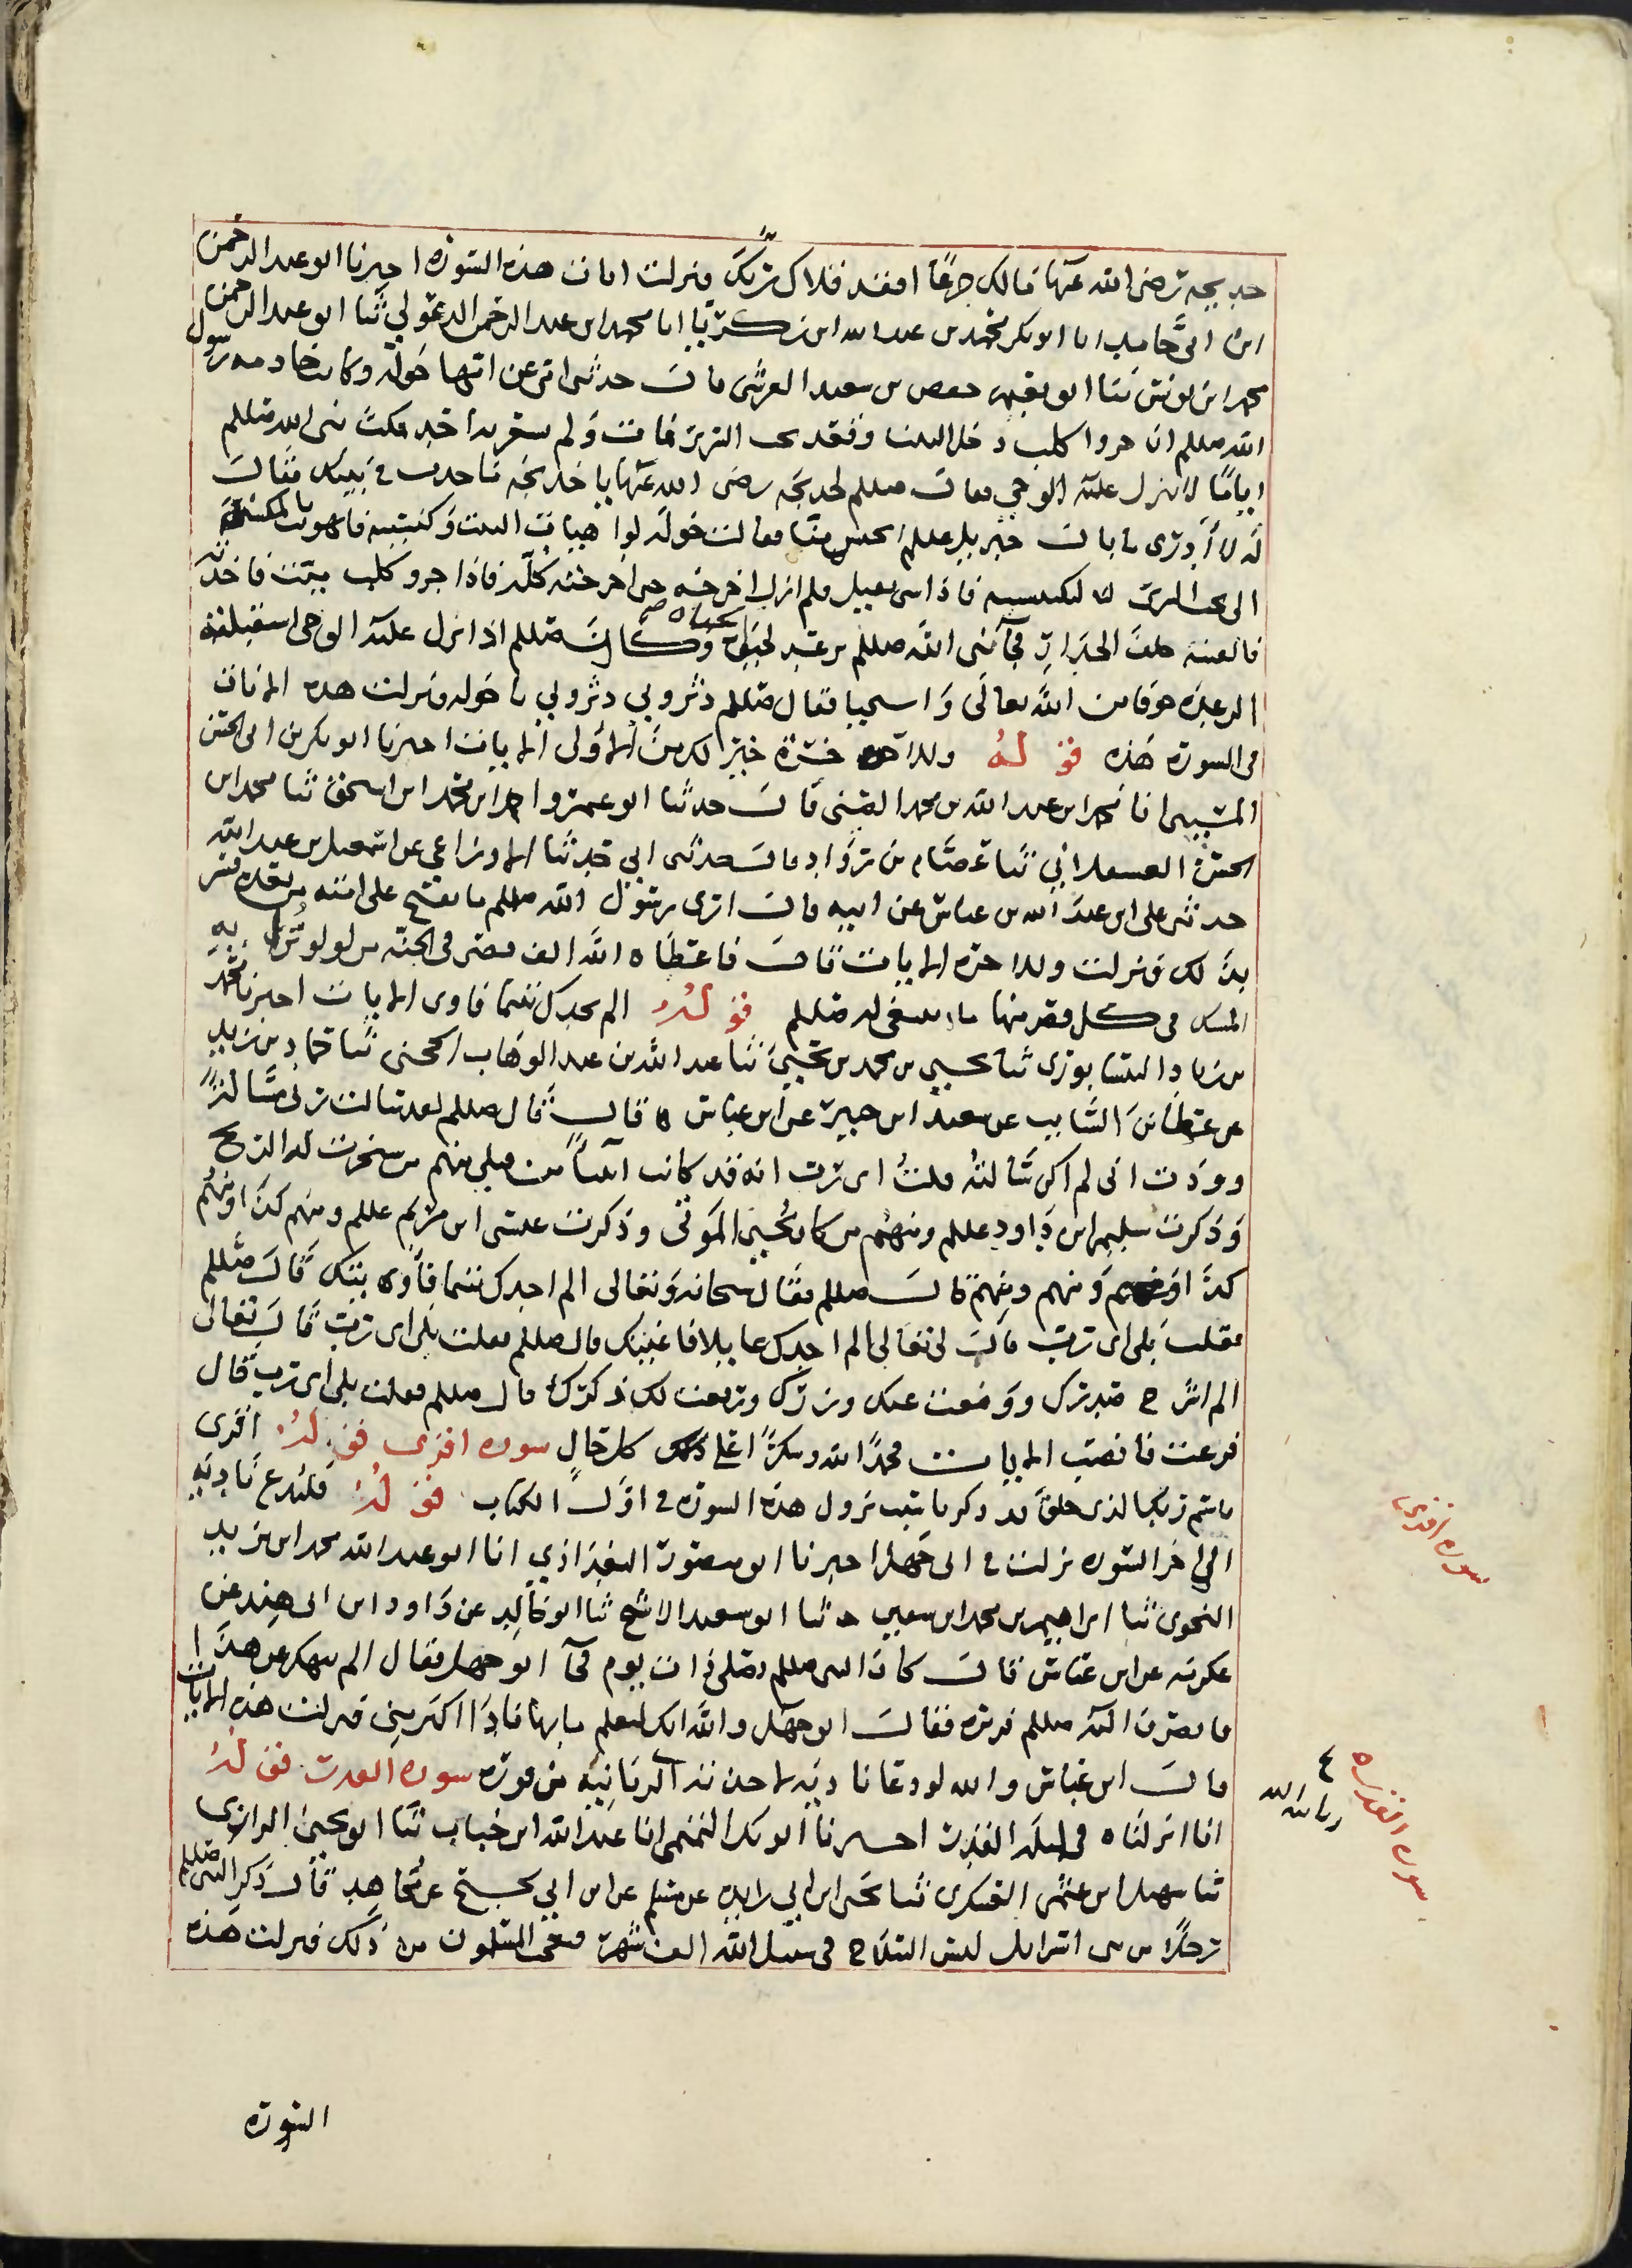 خديجة رضى الله عنها مالك جزعا افقد قلاك ربك فنزلت امات هذه السورة اخبرنا ابو عبد الرحمن
ابن ابى حامد انا ابو بكر محمد بن عبد الله ابن زكريا انا محمد ابن عبد الرحمن الدغولي ثنا ابو عبد الرحمن
محمد ابن يونس ثنا ابو نعيم حفص بن سعيد القرشى قال حدثنى امى عن امها خولة وكانت خادمه رسول
الله صللم ان جروا كلب دخل البيت فقعد تحت السرير فمات ولم سعر به احد مكث نبى الله صللم
اياما لا ينزل عليه الوحي فقال صللم لخديجه رضى الله عنها يا خديجه ما حدث في بيتى فقالت
له لا أدرى ما بال جبريل عللم احتبس عنا فقالت خولة لوا هيات البيت وكنسته فاهويت بالمكنسة
الى تحت السرير فاذا شى ثقيل فلم ازل اخرجه حى اخرجته كله فاذا جرو كلب ميت فاخذته
فالقيته خلف الجدار فجآء نبى الله صللم ترعد لحياه وكان صللم اذا نزل عليه الوحى استقبلته
الرعدة خوفا من الله تعالى واستحيا فقال صللم دثروني دثروني يا خولة فنزلت هذه الايات
فى السورة هذه قوله وللاخرة خير لك من الاولى الايات اخبرنا ابو بكر بن ابى الحسن
المسيبى انا محمد ابن عبد الله بن محمد الضبى قال حدثنا ابو عمرو احمد ابن محمد ابن اسحق ثنا محمد ابن
الحسن العسقلاني ثنا عصام بن رواد قال حدثنى ابي حدثنا الاوزاعي عن اسمعيل بن عبد الله
حدثنى على ابن عبد الله بن عباس عن ابيه قال ارى رسول الله صللم ما يفتح على امته من بعده فسر
بذلك فنزلت وللاخرة الايات قال فاعطاه الله الف قصر فى الجنة من لولو ترابه
المسك فى كل قصر منها ما ينبغى له صللم قوله الم يجدك يتيما فاوى الايات اخبرنا محمد
بن زياد النيسابورى ثنا يحيى بن محمد بن يحيى ثنا عبد الله بن عبد الوهاب الحجبى ثنا حماد بن زيد
عن عطا بن السايب عن سعيد ابن جبير عن ابن عباس قال قال صللم لقد سالت ربى مسالة
وودت انى لم اكن سالته قلت اى رب انه قد كانت انبيا من قبلي منهم من سخرت له الريح
وذكرت سليمن ابن داود عللم ومنهم من كان يحيى الموتى وذكرت عيسى ابن مريم عللم ومنهم كذا ومنهم
كذا ومنهم ومنهم قال صللم فقال سبحانه وتعالى الم اجدك يتيما فأوى بيتك قال صللم
فقلت بلى اى رب قال لى تعالى الم اجدك عايلا فاغنيتك قال صللم فقلت بلى اى رب قال تعالى
الم اشرح صدرك ووضعت عنك وزرك ورفعت لك ذكرك قال صللم فقلت بلى اى رب قال
فرغت فانصب الايات محمدا لله وشكرا على ذلك كل حال سوره اقرى قوله اقرى
باسم ربك الذى خلق قد ذكرنا سبب نزول هذه السوره في اول الكتاب قوله فليدع ناديه
الي اخر السوره نزلت في ابى جهل اخبرنا ابو منصور البغدادي انا ابو عبد الله محمد ابن يزيد
النحوى ثنا ابراهيم بن محمد ابن سعيد ثنا ابو سعيد الاشج ثنا ابو خالد عن داود ابن ابى هند عن
عكرمه عن ابن عباس قال كان النبى صللم يصلى ذات يوم فجآ ابو جهل فقال الم ينهك عن هذا
فانصرف اليه صللم فزبره فقال ابو جهل والله انك لتعلم ما بها ناد اكثر مني فنزلت هذه الايات
قال ابن عباس والله لو دعا ناديه لاخذته الزبانية من فوره سوره القدر قوله
انا انزلناه فى ليلة القدر اخبرنا ابو بكر التميمى انا عبد الله ابن حباب ثنا ابو يحيى الرازى
ثنا سهل ابن عثمن العسكرى ثنا يحيى ابن ابي زايدة عن مسلم عن ابن ابي نجيح عن مجاهد قال ذكر النبى صللم
رجلا من بنى اسرايل لبس السلاح فى سبيل الله الف شهر فعجب المسلمون من ذلك فنزلت هذه
السورة
سوره اقرى
سوره القدر